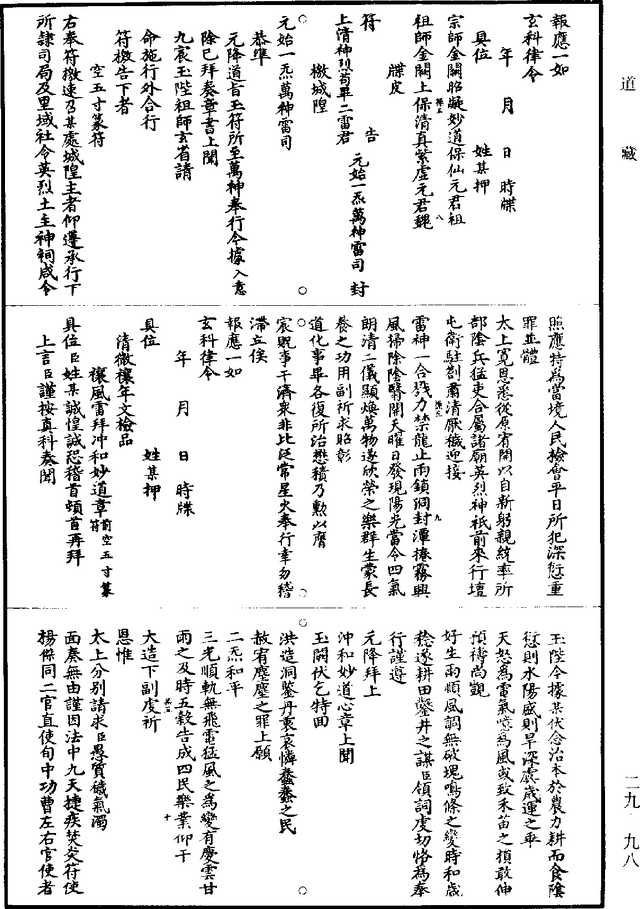 道藏
報應一如
玄科律令
年 月 日 時牒
具位 姓某押
宗師金闕昭凝妙道保仙元君祖
祖師金闕上保清真紫虛元君魏
牒皮
符 告 元始一炁萬神雷司 封
上清神烈苟畢二雷君
檄城隍
元始一炁萬神雷司
恭準
元降道旨玉符所至萬神奉行令據入意
除已拜奏章書上聞
九宸玉陛祖師玄省請
命施行外合行
符檄告下者
空五寸篆符
右奉符檄速乃某處城隍主者仰遵承行下
所隸司局及里域社令英烈土主神祠咸令
照應特為當境人民檢會平日所犯深愆重
罪並體
太上寬恩悉從原宥開以自新躬親統率所
部陰兵猛吏合屬諸廟英烈神祇前來行壇
屯衛駐劄肅清厭穢迎接
雷神一合戮力禁龍止雨鎖洞封潭捲霧興
風掃除陰翳開天曜日發現陽光當令四氣
朗清二儀顯煥萬物遂欣榮之樂群生蒙長
養之功用副祈求昭彰
道化事畢各復所治懋積乃勲以膺
宸貺事干濟衆非比泛常星火奉行幸勿稽
滯立俟
報應一如
玄科律令
年 月 日 時牒
具位 姓某押
清微禳年文檢品
禳風雷拜冲和妙道章前空五寸篆符
具位臣姓某誠惶誠恐稽首頓首再拜
上言臣謹按真科奏聞
玉陛今據某伏念治本於農力耕而食陰
愆則水陽盛則旱深虞歲運之乖
天怒為雷氣噫為風或致禾苗之損敢伸
預禱尚覬
好生雨順風調無破塊鳴條之變時和歲
稔遂耕田鑿井之謀臣領詞虔切恪為奉
行謹遵
元降拜上
沖和妙道心章上聞
玉闕伏乞特回
洪造洞鑒丹衷哀憐蠢蠢之民
赦宥塵塵之罪上願
二炁和平
三光順軌無飛雹猛風之為變有慶雲甘
雨之及時五穀告成四民樂業仰干
大造下副虔祈
恩惟
太上分別請求臣愚質穢氣濁
面奏無由謹因法中九天捷疾焚炎符使
楊傑同二官直使句中功曹左右官使者
二九·九八